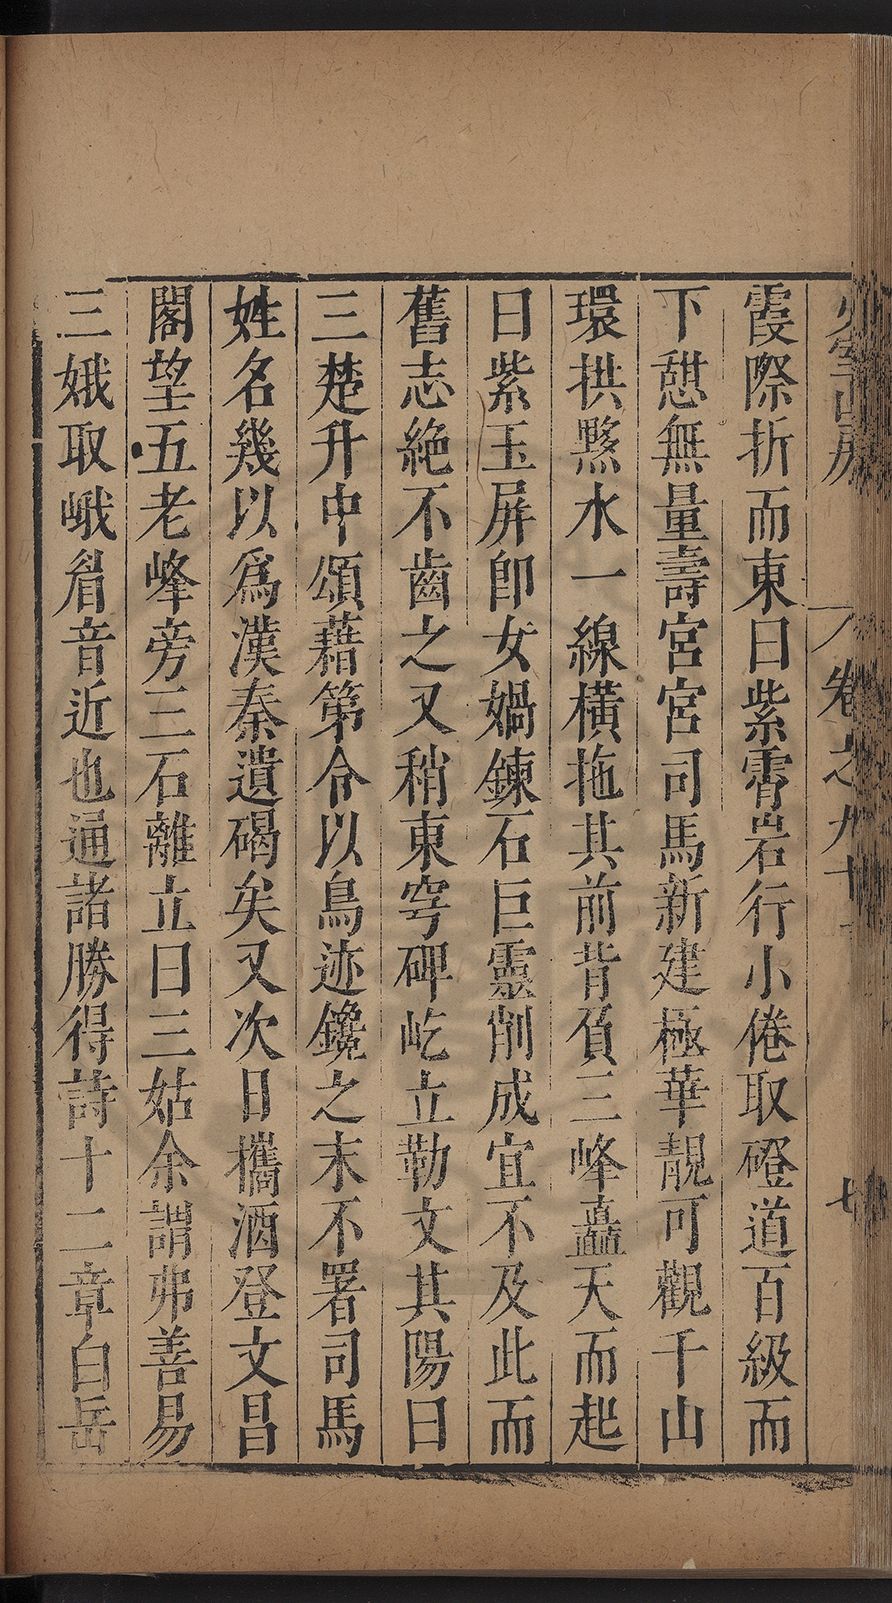 卷之九十
七
霞際折而東曰紫霄岩行小倦取磴道百級而
下憇無量壽宮宮司馬新建極華靚可觀千山
環拱黟水一線橫拖其前背負三峰矗天而起
曰紫玉屏卽女媧鍊石巨靈削成宜不及此而
舊志絶不齒之又稍東穹碑屹立勒文其陽曰
三楚升中頌藉第令以鳥迹鑱之末不署司馬
姓名幾以爲漢秦遺碣矣又次日攜酒登文昌
閣望五老峰旁三石離立曰三姑余謂弗善易
三娥取峨眉音近也通諸勝得詩十二章白岳